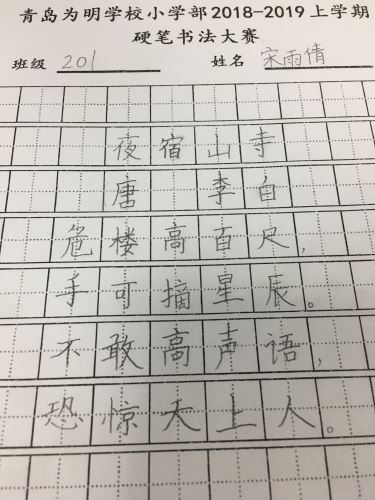 青岛为明学校小学部2018-2019上学期
硬笔书法大赛
班级 201 姓名 宋雨倩
夜宿山寺
唐 李白
危楼高百尺，
手可摘星辰。
不敢高声语，
恐惊天上人。